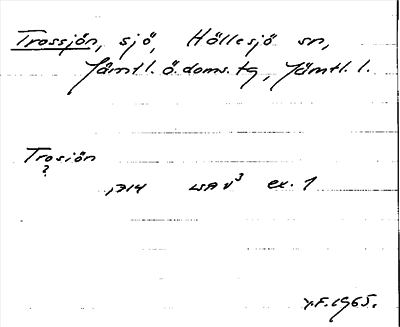 Trossjön, sjö, Hällesjö sn,
Jämtl. ö. doms. tg, Jämtl. l.
Trosiön
?
1714 LSA V³ ex. 1
Y.F. 1965.